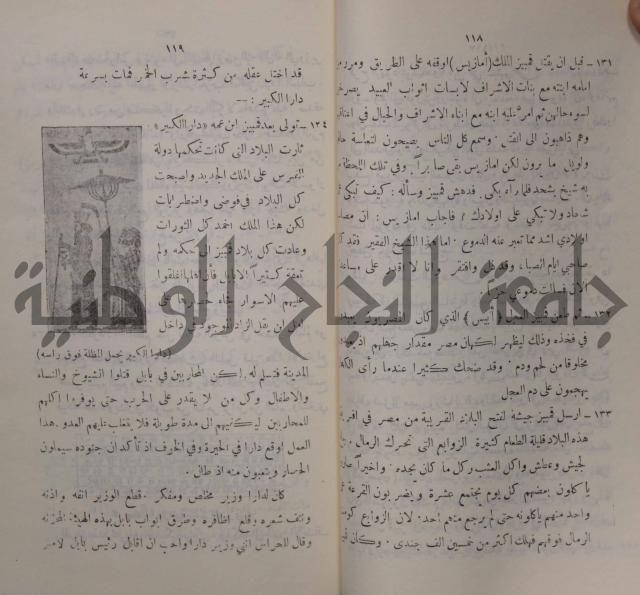 ١١٨
١٣١ - قبل ان يقتل قمبيز الملك (أمازيس) اوقفه على الطريق ومرر
امامه ابنته مع بنات الاشراف لابسات اثواب العبيد يصرخن
لسوء حالتهن ثم امر عليه ابنه مع ابناء الاشراف والحبال في اعناقهم
وهم ذاهبون الى القتل وسمع كل الناس يصيحون لتعاسة
ما يرون لكن امازيس بقي صابراً وفي تلك اللحظة
به شيخ يشحد فلما رآه بكى. فدهش قمبيز وسأله: كيف تبكي
شحاد ولا تبكي على اولادك؟ فاجاب امازيس: ان
اولادي اشد مما تعبر عنه الدموع. اما هذا الشيخ الفقير فقد
صاحبي ايام الصبا، وقد ذل وافتقر وانا لا اقدر على
الان فسالت دموعي
١٣٢ - قمبيز العجل (أبيس) الذي كان
في فخذه وذلك ليظهر لكهان مصر مقدار جهلهم
مخلوقا من لحم ودم. وقد ضحك كثيرا عندما رأى
يهجمون على دم العجل
١٣٣ - ارسل قمبيز جيشه لفتح البلاد القريبة من مصر في
هذه البلاد قليلة الطعام كثيرة الزوابع التي تحرك الرمال
الجيش وعطش واكل العشب وكل ما كان يجده. واخيراً
يأكلون بعضهم كل يوم يجتمع عشرة ويضربون القرعة
واحد منهم يأكلونه حتى لم يرجع منهم احد. لان الزوابع
الرمال فوقهم فهلك اكثر من خمسين الف جندي. وكان
١١٩
قد اختل عقله من كثرة شرب الخمر فمات بسرعة
دارا الكبير: --
١٣٤ - تولى بعد قمبيز ابن عمه «دارا الكبير»
ثارت البلاد التي كانت تحكمها دولة
الفرس على الملك الجديد واصبحت
كل البلاد في فوضى واضطرابات
لكن هذا الملك اخمد كل الثورات
وعادت كل بلاد قمبيز الى حكمه ولم
تعقه كثيراً الا بابل فان اهلها اغلقوا
عليهم الاسوار
امل ان يقل الزاد الموجود في داخل
(دارا الكبير يحمل المظلة فوق رأسه)
المدينة فتسلم له. لكن المحاربين في بابل قتلوا الشيوخ والنساء
والاطفال وكل من لا يقدر على الحرب حتى يوفروا اكلهم
للمحاربين ليكفيهم الى مدة طويلة فلا يتغلب عليهم العدو. هذا
العمل اوقع دارا في الحيرة وفي الخوف اذ تأكد ان جنوده سيملون
الحصار ويتعبون منه اذ طال.
كان لدارا وزير مخلص ومفكر. قطع الوزير انفه واذنه
ونتف شعره وقلع اظافره وطرق ابواب بابل بهذه الهيئة المحزنة
وقال للحراس انني وزير دارا واحب ان اقابل رئيس بابل لامر
جامعة النجاح الوطنية